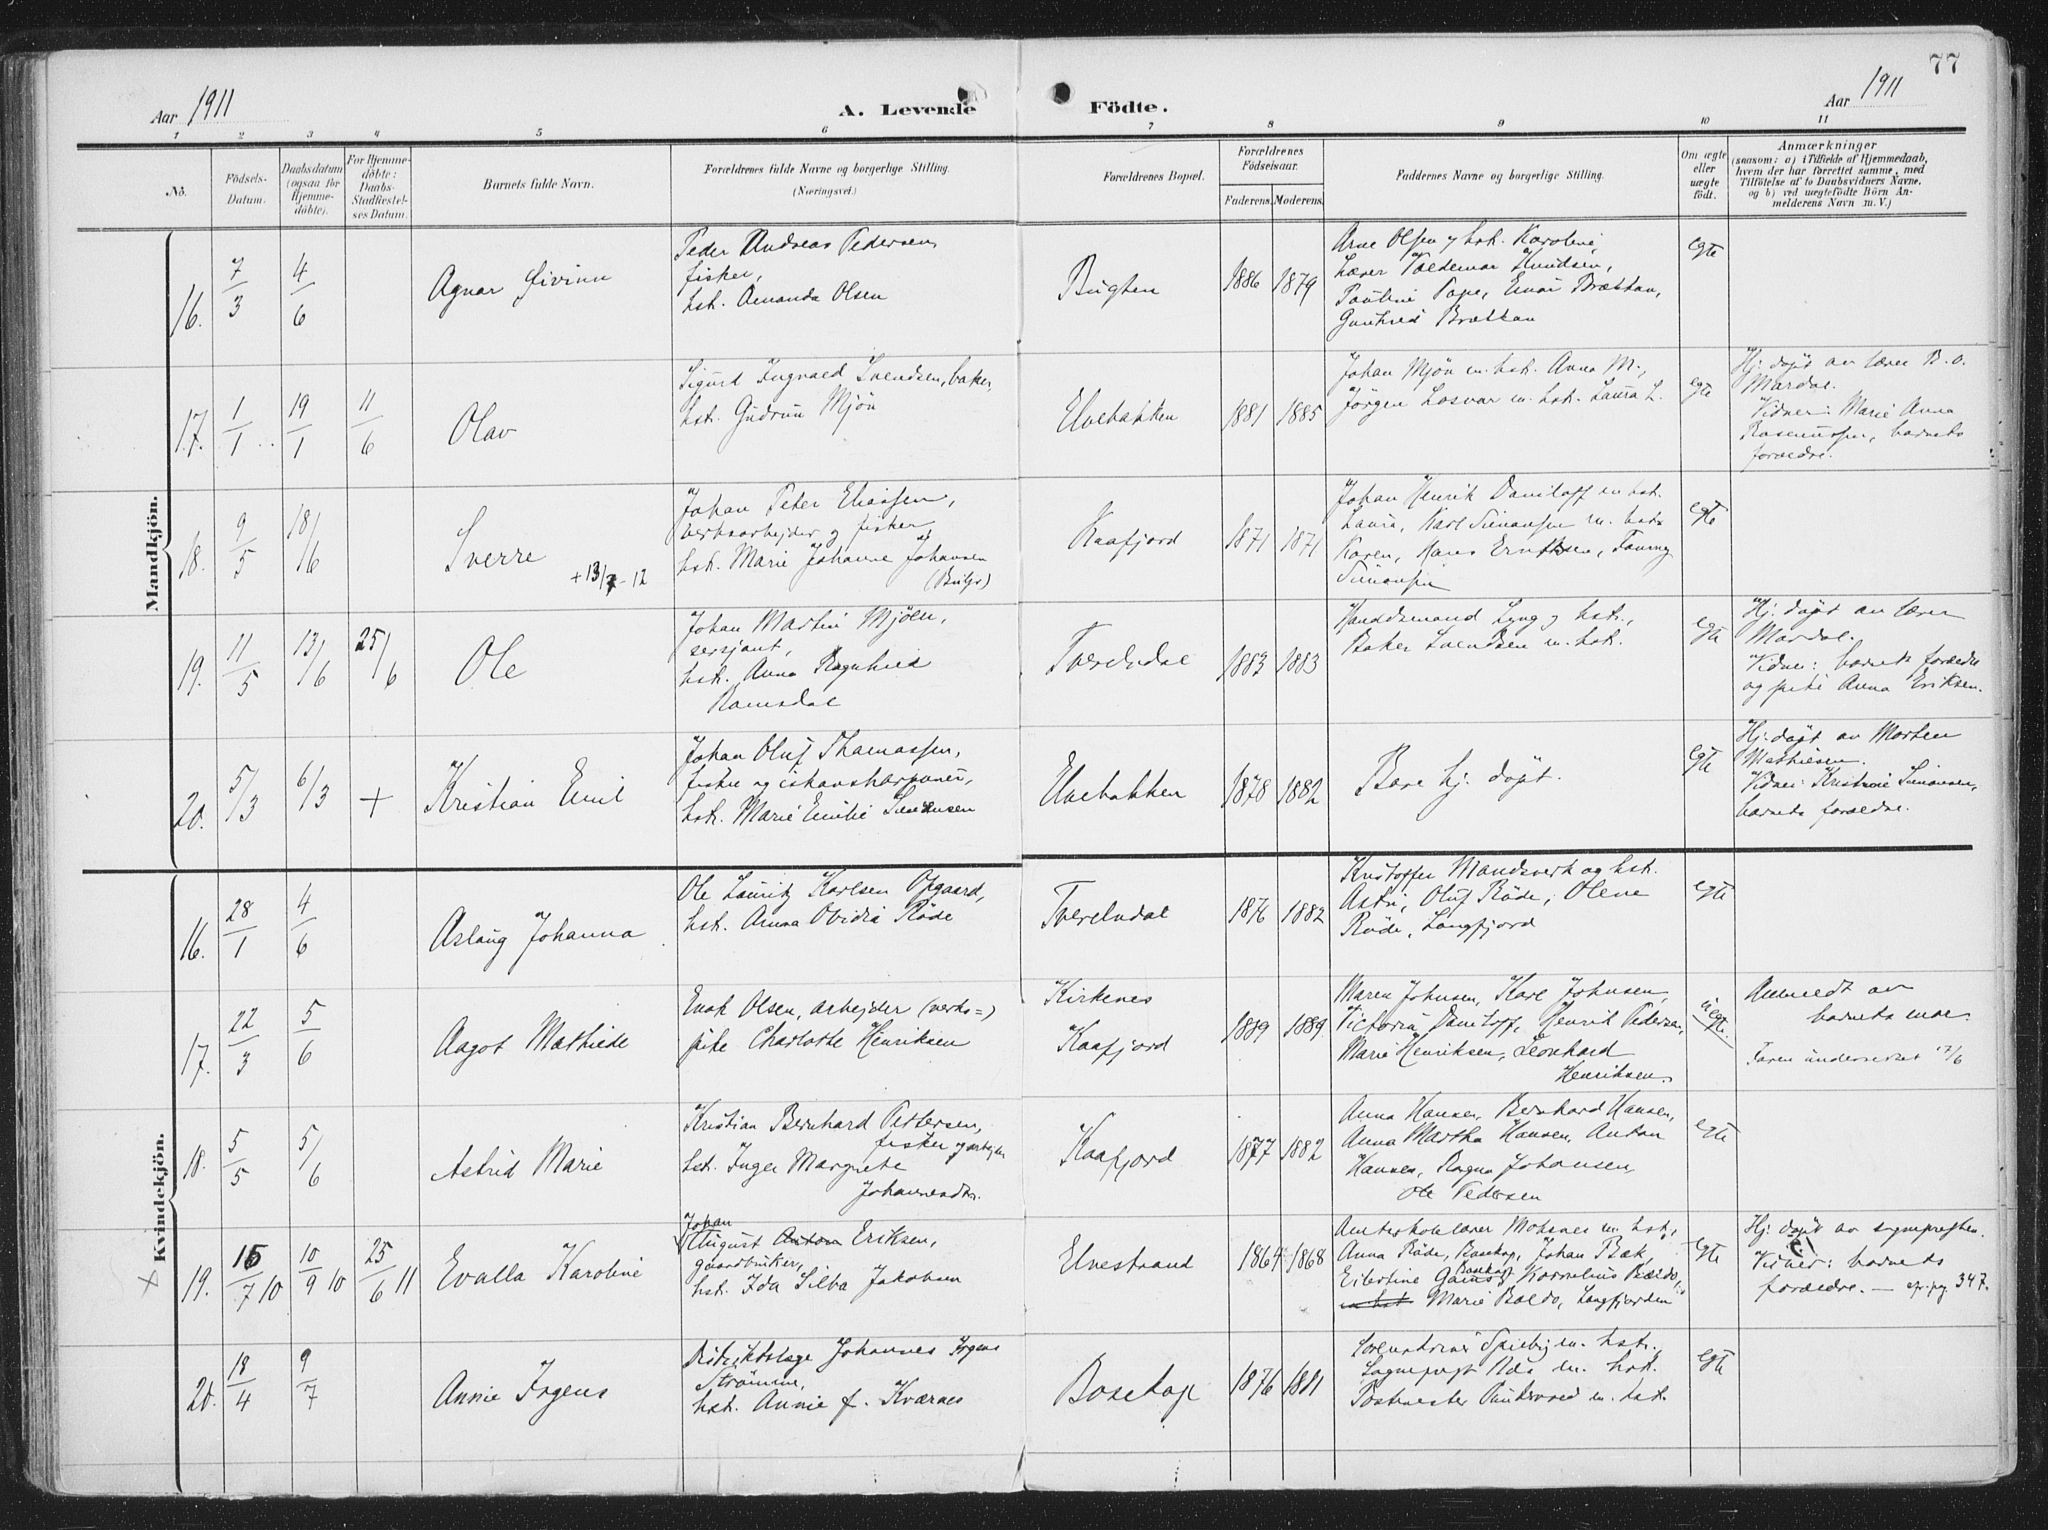 77
Aar 1911
A. Levende Födte.
Aar 1911
1 2 3 4 5 6 7 8 9 10 11
No.
Födsels-Datum.
Daabsdatum (ogsaa for Hjemmedöbte).
For Hjemmedöbte: Daabs-Stadfæstelses Datum.
Barnets fulde Navn.
Forældrenes fulde Navne og borgerlige Stilling. (Næringsvei.)
Forældrenes Bopæl.
Forældrenes Födselsaar.
Faderens. Moderens.
Faddernes Navne og borgerlige Stilling.
Om ægte eller uægte födt.
Anmærkninger
(saasom: a) i Tilfælde af Hjemmedaab, hvem der har forrettet samme, med Tilföielse af to Daabsvidners Navne, og b) ved uægtefödte Börn Anmelderens Navn m. V.)
Mandkjön.
16. 7/3 4/6
Agnar Eivinn
Peder Andreas Pedersen,
fisker,
hst. Amanda Olsen
Bugten
1886 1879
Arne Olsen og hst. Karoline,
Lærer Valdemar Knudsen,
Pauline Pape, Einar Brækkan,
Gunhild Brækkan
egte
17. 1/1 19/1 11/6
Olav
Sigurd Ingvald Svendsen, baker,
hst. Gudrun Mjön
Elvebakken
1881 1885
Johan Mjön m. hst. Anna M.,
Jörgen Losvar m. hst. Laura L.
egte
Hj. døpt av lærer B. O.
Mardal.
Vidner: Marie Anna
Rasmussen, barnets
forældre.
18. 9/5 18/6
Sverre
+ 13/7-12
Johan Peter Eliassen,
verksarbejder og fisker
hst. Marie Johanne Johansen
Kaafjord
1871 1871
Johan Henrik Daniloff m hst.
Laura, Karl Simonsen m. hst.
Karen, Hans Eriksen, Fanny
Simonsen
egte
19. 11/5 13/6 25/6
Ole
Johan Martin Mjöen,
sersjant,
hst. Anna Ragnhild
Ramsdal
Tverelvdal
1883 1883
Handelsmand Lyng og hst.,
Baker Svendsen m. hst.
egte
Hj. døpt av lærer
Mardal.
Vidner: barnets forældre
og pike Anna Eriksen.
20. 5/3 6/3 +
Kristian Emil
Johan Oluf Thomassen,
fisker og ishavsharpuner,
hst. Marie Emilie Simonsen
Elvebakken
1878 1882
Bare hj. døpt.
egte
Hj. døpt av Morten
Mathiesen.
Vidner: Kristine Simonsen,
barnets forældre.
Kvindekjön.
16. 28/1 4/6
Aslaug Johanna
Ole Lauritz Karlsen Opgaard,
hst. Anna Ovidia Röde
Tverelvdal
1876 1882
Kristoffer Mandsverk og hst.
Astri, Oluf Röde, Olene
Röde, Langfjord
egte
17. 22/3 5/6
Aagot Mathilde
Enok Olsen, arbejder (verks=)
pike Charlotte Henriksen
Kirkenes
Kaafjord
1889 1889
Maren Johnsen, Karl Johnsen,
Victoria Daniloff, Henrik Pedersen,
Marie Henriksen, Leonhard
Henriksen.
uegte.
Anmeldt av
barnets mor.
Faren underrettet 17/6
18. 5/5 5/6
Astrid Marie
Kristian Bernhard Pettersen,
fisker og arbejder
hst. Inger Margrete
Johannesdtr.
Kaafjord
1877 1882
Anna Hansen, Bernhard Hansen,
Anna Martha Hansen, Anton
Hansen, Ragna Johansen,
Ole Pedersen
egte
× 19. 16/7 10 10/9 10 25/6 11
Evalla Karoline
Johan
August Anton Eriksen,
gaardbruker,
hst. Ida Silba Jakobsen
Elvestrand
1864 1868
Amtsskolelærer Moksnes m. hst.,
Anna Röde, Bosekop, Johan Bæk,
Eilertine Gamst, Bosekop Kornelius Baldo,
m hst. Marie Baldo, Langfjorden
egte
Hj. døpt av sognepresten.
Vidner: barnets
forældre. — pag 347.
20. 18/4 9/7
Annie Irgens
Distriktslæge Johannes Irgens
Strömme,
hst. Annie f. Kværnes
Bosekop
1876 1881
Lensmand Spieberg m. hst.,
Sognepr m. hst.
Postmester m. hst.
egte